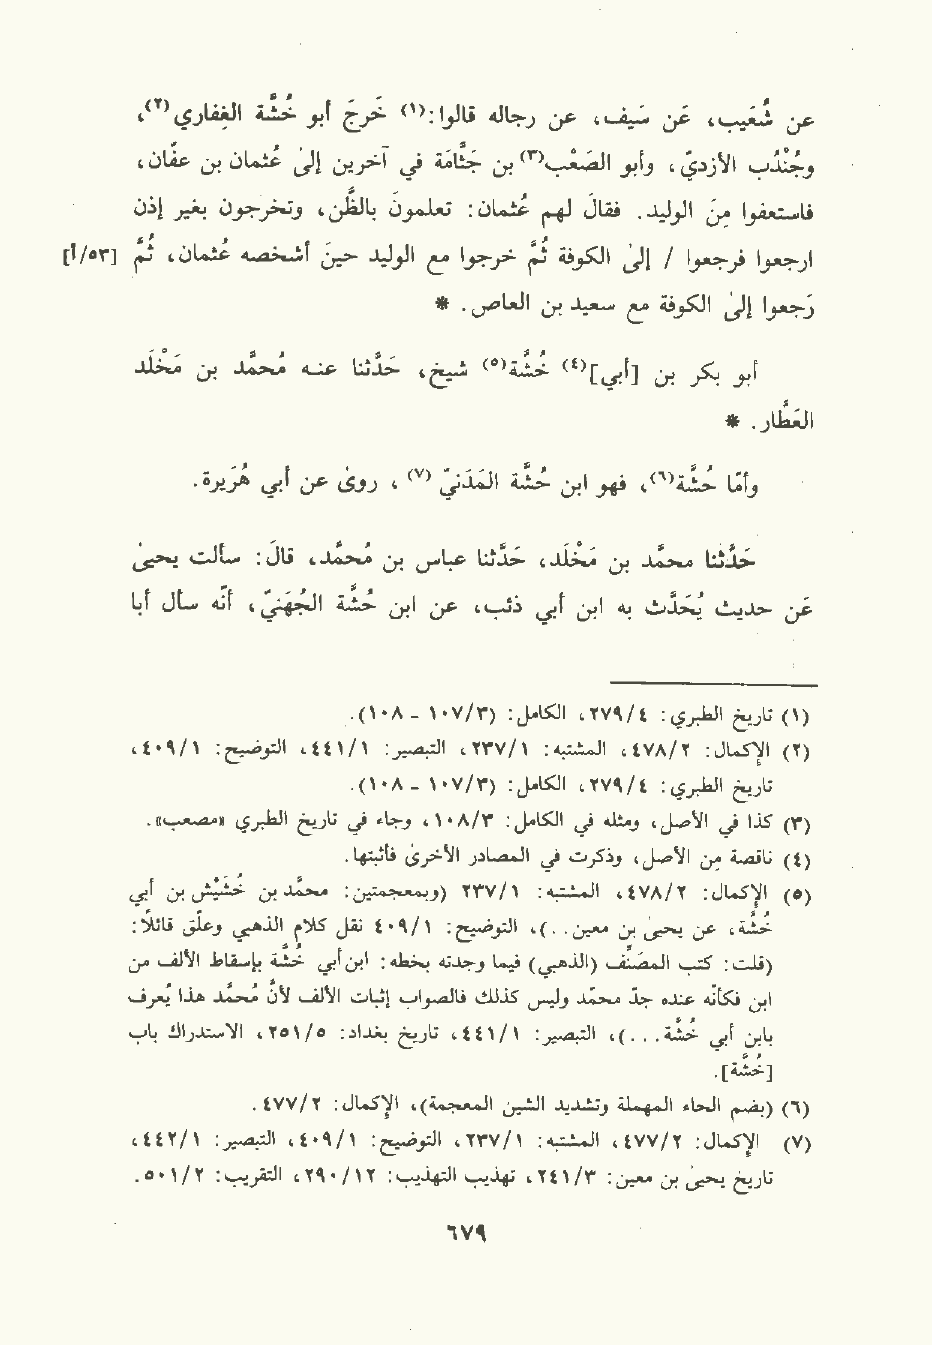 عن شُعَيب، عَن سَيف، عن رجاله قالوا:(١) خَرجَ أبو خُشَّة الغِفاري(٢)،
وجُنْدُب الأزديّ، وأبو الصَّعْب(٣) بن جَثّامَة في آخرين إلىٰ عُثمان بن عفّان،
فاستعفوا مِنَ الوليد. فقالَ لهم عُثمان: تعملونَ بالظَّن، وتخرجونَ بغير إذن
ارجعوا فرجعوا / إلىٰ الكوفة ثُمَّ خرجوا مع الوليد حينَ أشخصه عُثمان، ثُمَّ [٥٣/أ]
رَجعوا إلىٰ الكوفة مع سعيد بن العاص. *
أبو بكر بن [أبي](٤) خُشَّة(٥) شيخ، حَدَّثنا عنه مُحمَّد بن مَخْلَد
العَطَّار. *
وأمّا حُشَّة(٦)، فهو ابن حُشَّة المَدَنيّ(٧)، روىٰ عن أبي هُرَيرة.
حَدَّثنا محمَّد بن مَخْلَد، حَدَّثنا عباس بن مُحمَّد، قالَ: سألت يحيىٰ
عَن حديث يُحَدَّث به ابن أبي ذئب، عن ابن حُشَّة الجُهَنيّ، أنّه سأل أبا
(١) تاريخ الطبري: ٢٧٩/٤، الكامل: (١٠٧/٣ - ١٠٨).
(٢) الإكمال: ٤٧٨/٢، المشتبه: ٢٣٧/١، التبصير: ٤٤١/١، التوضيح: ٤٠٩/١،
تاريخ الطبري: ٢٧٩/٤، الكامل: (١٠٧/٣ - ١٠٨).
(٣) كذا في الأصل، ومثله في الكامل: ١٠٨/٣، وجاء في تاريخ الطبري «مصعب».
(٤) ناقصة من الأصل، وذكرت في المصادر الأخرىٰ فأثبتها.
(٥) الإكمال: ٤٧٨/٢، المشتبه: ٢٣٧/١ (وبمعجمتين: محمَّد بن خُشَّيْش بن أبي
خُشَّة، عن يحيىٰ بن معين..)، التوضيح: ٤٠٩/١ نقل كلام الذهبي وعلَّق قائلاً:
(قلت: كتب المصنِّف (الذهبي) فيما وجدته بخطه: ابن أبي خُشَّة بإسقاط الألف من
ابن فكأنَّه عنده جدّ محمَّد وليس كذلك فالصواب إثبات الألف لأنَّ مُحمَّد هذا يُعرف
بابن أبي خُشَّة...)، التبصير: ٤٤١/١، تاريخ بغداد: ٢٥١/٥، الاستدراك باب
[خُشَّة].
(٦) (بضم الحاء المهملة وتشديد الشين المعجمة)، الإكمال: ٤٧٧/٢.
(٧) الإكمال: ٤٧٧/٢، المشتبه: ٢٣٧/١، التوضيح: ٤٠٩/١، التبصير: ٤٤٢/١،
تاريخ يحيىٰ بن معين: ٢٤١/٣، تهذيب التهذيب: ٢٩٠/١٢، التقريب: ٥٠١/٢.
٦٧٩